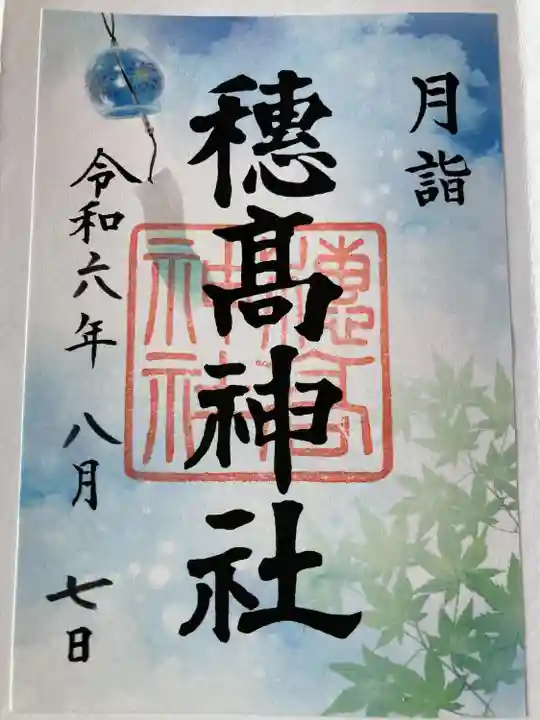 月詣
穂髙神社
令和六年 八月 七日
穂高
神社